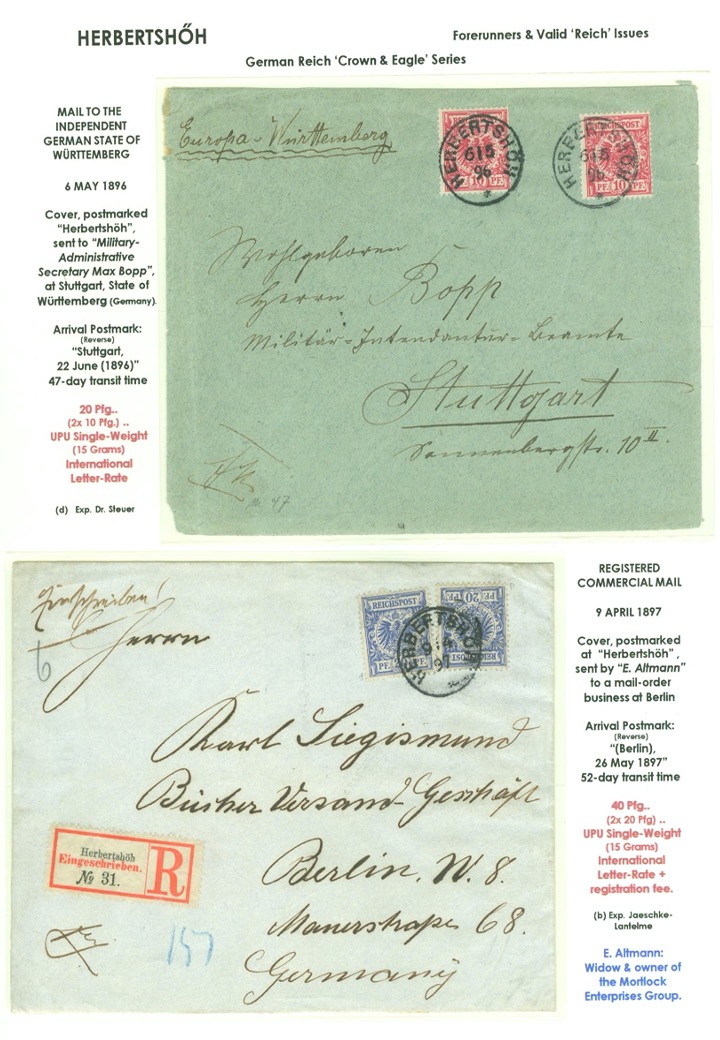 HERBERTSHŐH
Forerunners & Valid 'Reich' Issues
German Reich 'Crown & Eagle' Series
MAIL TO THE
INDEPENDENT
GERMAN STATE OF
WÜRTTEMBERG
6 MAY 1896
Cover, postmarked
"Herbertshöh",
sent to "Military-
Administrative
Secretary Max Bopp",
at Stuttgart, State of
Württemberg (Germany).
Arrival Postmark:
(Reverse)
"Stuttgart,
22 June (1896)"
47-day transit time
20 Pfg..
(2x 10 Pfg.) ..
UPU Single-Weight
(15 Grams)
International
Letter-Rate
(d) Exp. Dr. Steuer
Europa - Württemberg
HERBERTSHÖH
6 1 5
96
*
10 PF.
REICHSPOST
HERBERTSHÖH
6 1 5
96
*
PF. 10 PF.
Wohlgeboren
Herrn Bopp
Militär-Intendantur-Beamte
Stuttgart
Sonnenbergstr. 10 II.
47
Einschreiben!
6
Herrn
REICHSPOST
PF.
20 PF.
REICHSPOST
HERBERTSHÖH
9
97
Karl Siegismund
Bücher Versand-Geschäft
Berlin. W. 8.
Mauerstraße 68.
Germany
Herbertshöh
Eingeschrieben.
№ 31.
R
157
REGISTERED
COMMERCIAL MAIL
9 APRIL 1897
Cover, postmarked
at "Herbertshöh" ,
sent by "E. Altmann"
to a mail-order
business at Berlin
Arrival Postmark:
(Reverse)
"(Berlin),
26 May 1897"
52-day transit time
40 Pfg..
(2x 20 Pfg) ..
UPU Single-Weight
(15 Grams)
International
Letter-Rate +
registration fee.
(b) Exp. Jaeschke-
Lantelme
E. Altmann:
Widow & owner of
the Mortlock
Enterprises Group.